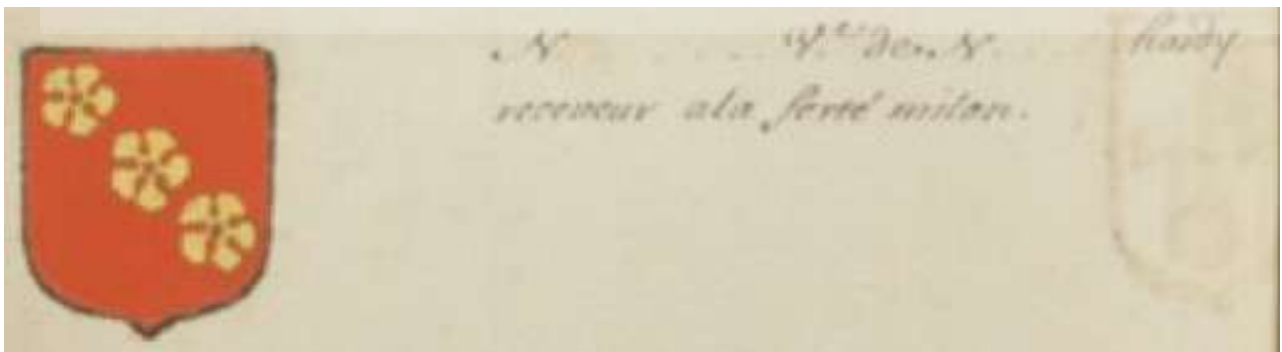 N . . . . V.e de N. . . hardy
receueur a la ferté milon.